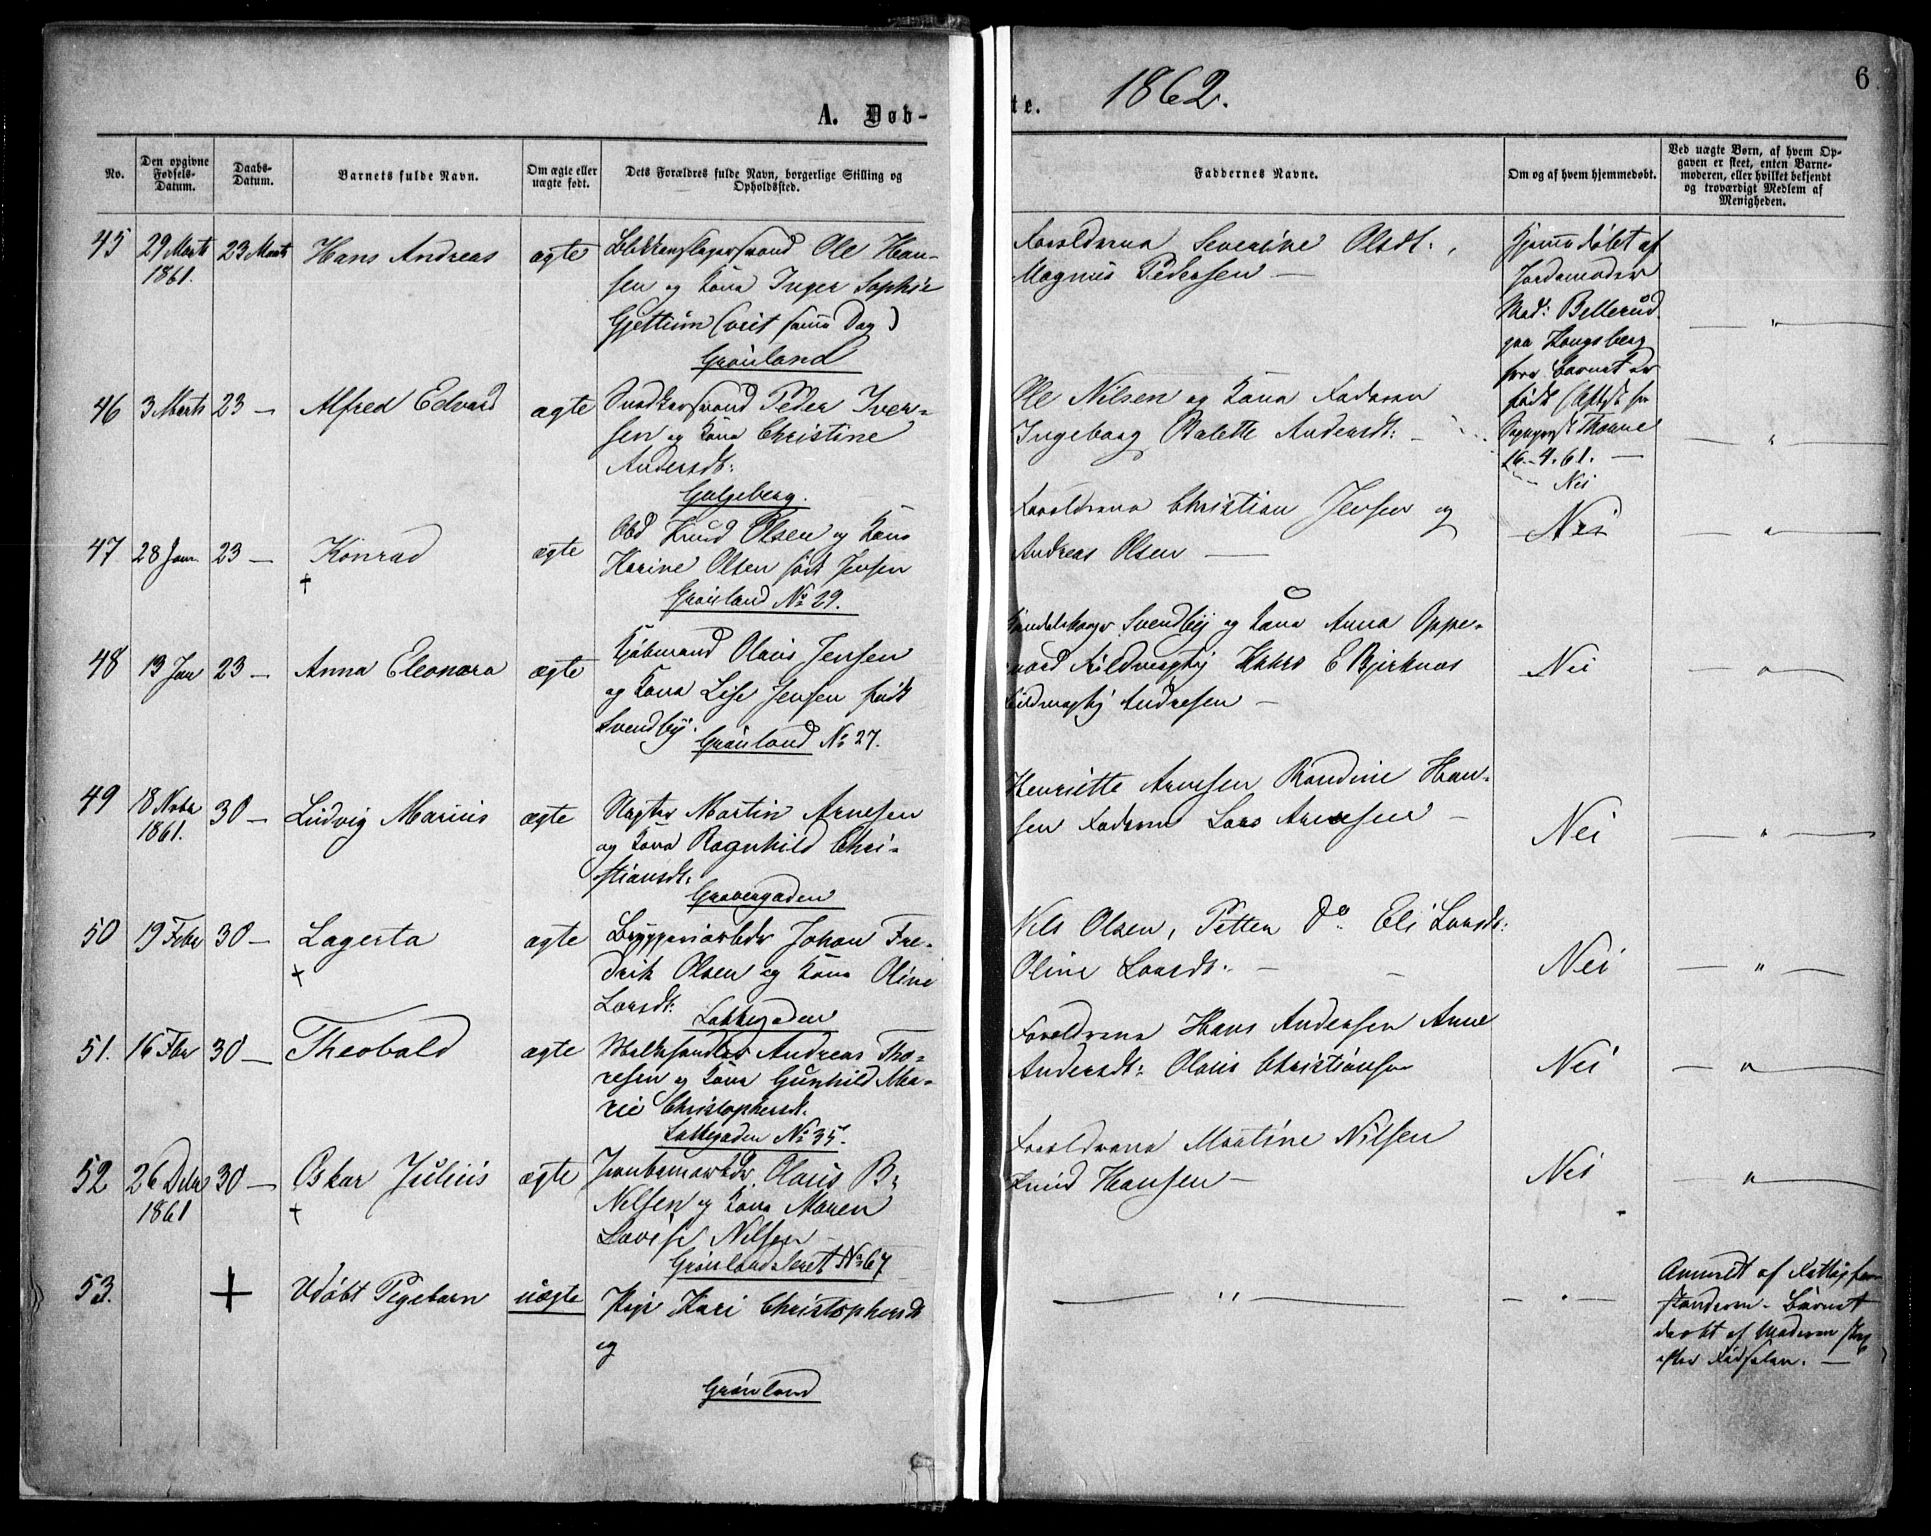 A. Døb-
te. 1862. 6
No.
Den opgivne Fødsels-Datum.
Daabs-Datum.
Barnets fulde Navn.
Om ægte eller uægte født.
Dets Forældres fulde Navn, borgerlige Stilling og
Opholdssted.
Faddernes Navne.
Om og af hvem hjemmedøbt.
Ved uægte Børn, af hvem Op-
gaven er skeet, enten Barne-
moderen, eller hvilket bekjendt
og troværdigt Medlem af
Menigheden.
45 29 Marts 23 Marts Hans Andreas ægte Blikkenslagersvend Ole Han-
1861. sen og Kone Inger Sophie
Gjettum (viet samme Dag)
Grønland
Forældrene Severine Olsdt:,
Magnus Pedersen —
Hjemmedøbt af
Jordemoder
Mad: Bellerud
paa Kongsberg
hvor Barnet er
født (Attest fra
Sognepræst Thonne
16-4.61. —
46 3 Marts 23 — Alfred Edvard ægte Snedkersvend Peder Iver-
sen og Kone Christine
Andersdt:
Galgeberg.
Ole Nilsen og Kone Faderen
Ingeborg Balette Andersdt: —
Nei
47 28 Janr 23 — Konrad ægte Abd Knud Olsen og Kone
† Karine Olsen født Jensen
Grønland No 29.
Forældrene Christian Jensen og
Andreas Olsen —
Nei
48 13 Jan 23 — Anna Eleonora ægte Kjøbmand Olaus Jensen
og Kone Lise Jensen født
Svendby.
Grønland No 27.
Svendby og Kone Anna Oppe-
Hans E Bjerknæs
Andresen —
Nei
49 18 Novbr 30 — Ludvig Marius ægte Vægter Martin Arnesen
1861. og Kone Ragnhild Chri-
stiansdt:
Gravergaden
Henriette Arnesen Randine Han-
sen Faderen Lars Arnesen —
Nei
50 19 Febr 30 — Lagerta ægte Bryggeriarbdr Johan Fre-
† drik Olsen og Kone Oline
Larsdt:
Lakkegaden
Nels Olsen, Petter Do Eli Larsdt:
Oline Larsdt: —
Nei
51. 16 Fbr 30 — Theobald ægte Melkehandler Andreas Tho-
resen og Kone Gunhild Ma-
rie Christophersdt.
Lakkegaden No 35.
Forældrene Hans Andersen Anne
Andersdt: Olaus Christiansen
Nei
52 26 Debr 30 — Oskar Julius ægte Jernbanearbdr. Olaus B.
1861 † Nilsen og Kone Maren
Lovise Nilsen —
Grønlandsleret No 67
Forældrene Martine Nilsen
Knud Hansen —
Nei
53. + Udøbt Pigebarn uægte Pige Kari Christophersdt
og
Grønland
Anmeldt af Fattigfor-
standeren. Barnet
dræbt af Moderen strax
efter Fødselen. —